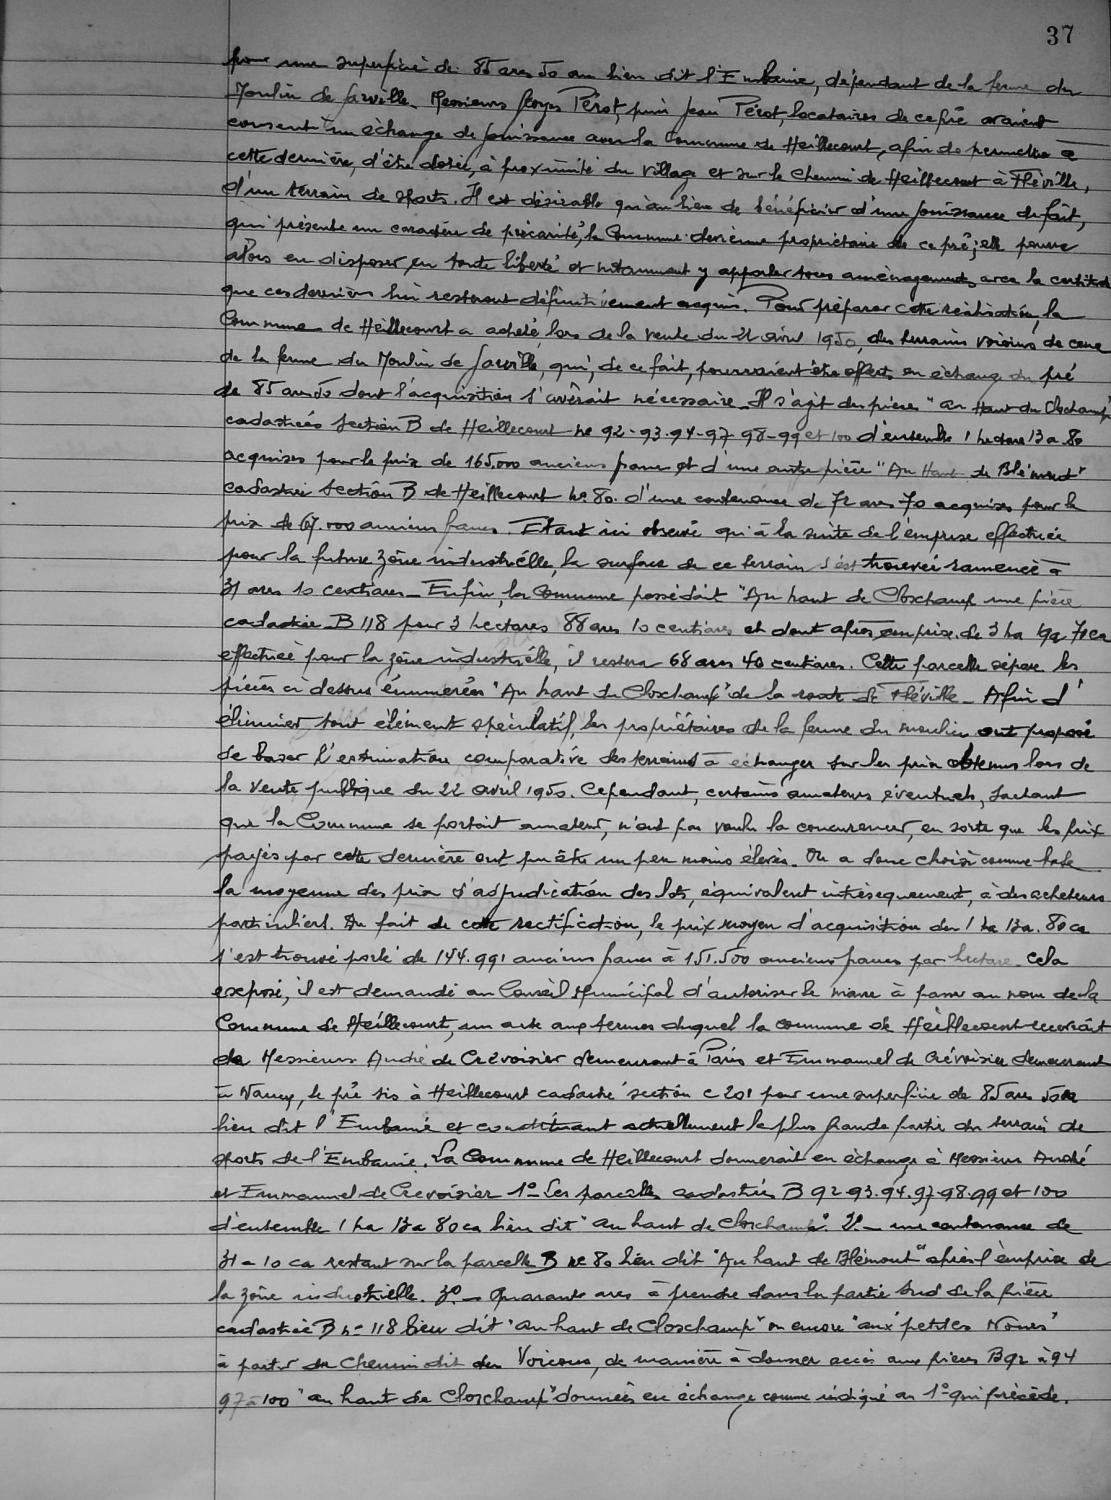 37
pour une superficie de 85 ares 50 au lieu dit l'Embanie, dépendant de la ferme du
Moulin de Jarville. Messieurs Georges Pérot, puis Jean Pérot, locataires de ce pré avaient
consenti un échange de jouissance avec la Commune de Heillecourt, afin de permettre à
cette dernière, d'être dotée, à proximité du village et sur le chemin de Heillecourt à Fléville,
d'un terrain de sports. Il est désirable qu'au lieu de bénéficier d'une jouissance de fait,
qui présente un caractère de précarité, la Commune devienne propriétaire de ce pré; elle pourra
alors en disposer en toute liberté et notamment y apporter tous aménagements, avec la certitude
que ces derniers lui resteront définitivement acquis. Pour préparer cette réalisation, la
Commune de Heillecourt a acheté, lors de la vente du 22 avril 1950, des terrains voisins de ceux
de la ferme du Moulin de Jarville, qui, de ce fait, pourraient être offerts en échange du pré
de 85 ares 50 dont l'acquisition s'avérait nécessaire. Il s'agit des pièces "au Haut du Closchamp"
cadastrées Section B de Heillecourt no 92-93-94-97-98-99 et 100 d'ensemble 1 hectare 13 a 80
acquises pour le prix de 165,000 anciens francs et d'une autre pièce "Au Haut de Blémont"
cadastrée Section B de Heillecourt no 80. d'une contenance de 72 ares 70 acquise pour le
prix de 67.000 anciens francs. Etant ici observé qu'à la suite de l'emprise effectuée
pour la future zône industrielle, la surface de ce terrain s'est trouvée ramenée à
31 ares 10 centiares _ Enfin, la Commune possédait "Au haut de Closchamp une pièce
cadastrée B 118 pour 3 hectares 88 ares 10 centiares et dont après emprise de 3 ha 19a 70ca
effectuée pour la zône industrielle, il restera 68 ares 40 centiares. Cette parcelle sépare les
pièces ci dessus énumérées "Au haut du Closchamp" de la route de Fléville _ Afin d'
éliminer tout élément spéculatif, les propriétaires de la ferme du moulin ont proposé
de baser l'estimation comparative des terrains à échanger sur les prix obtenus lors de
la vente publique du 22 avril 1950. Cependant, certains amateurs éventuels, sachant
que la Commune se portait amateur, n'ont pas voulu la concurrencer, en sorte que les prix
payés par cette dernière ont pu être un peu moins élevés. On a donc choisi comme base
la moyenne des prix d'adjudication des lots, équivalent intrèsequement, à des acheteurs
particuliers. Du fait de cette rectification, le prix moyen d'acquisition des 1 ha 13a. 80 ca
s'est trouvé porté de 144.991 anciens francs à 151.500 anciens francs par hectare. Cela
exposé, il est demandé au Conseil Municipal d'autoriser le maire à passer au nom de la
Commune de Heillecourt, un acte aux termes duquel la commune de Heillecourt recevrait
de Messieurs André de Crévoisier demeurant à Paris et Emmanuel de Crévoisier demeurant
à Nancy, le pré sis à Heillecourt cadastré section C 201 pour une superficie de 85 ares 50 au
lieu dit l'Embanie et constituant actuellement la plus grande partie du terrain de
sports de l'Embanie. La Commune de Heillecourt donnerait en échange à Messieurs André
et Emmanuel de Crevoisier 1º_ Les parcelles cadastrées B 92-93.94.97-98.99 et 100
d'ensemble 1 ha 13 a 80 ca lieu dit "au haut de Closchamp". 2º_ une contenance de
31 a 10 ca restant sur la parcelle B no 80 lieu dit "Au haut de Blémont" après l'emprise de
la zône industrielle. 3º_ Quarante ares à prendre dans la partie Sud de la pièce
cadastrée B no 118 lieu dit "au haut de Closchamp" ou encore "aux petites Noues"
à partir du Chemin dit des Voiroux, de manière à donner accès aux pièces B 92 à 94
97 à 100 "au haut de Closchamp" données en échange comme indiqué au 1º qui précède.